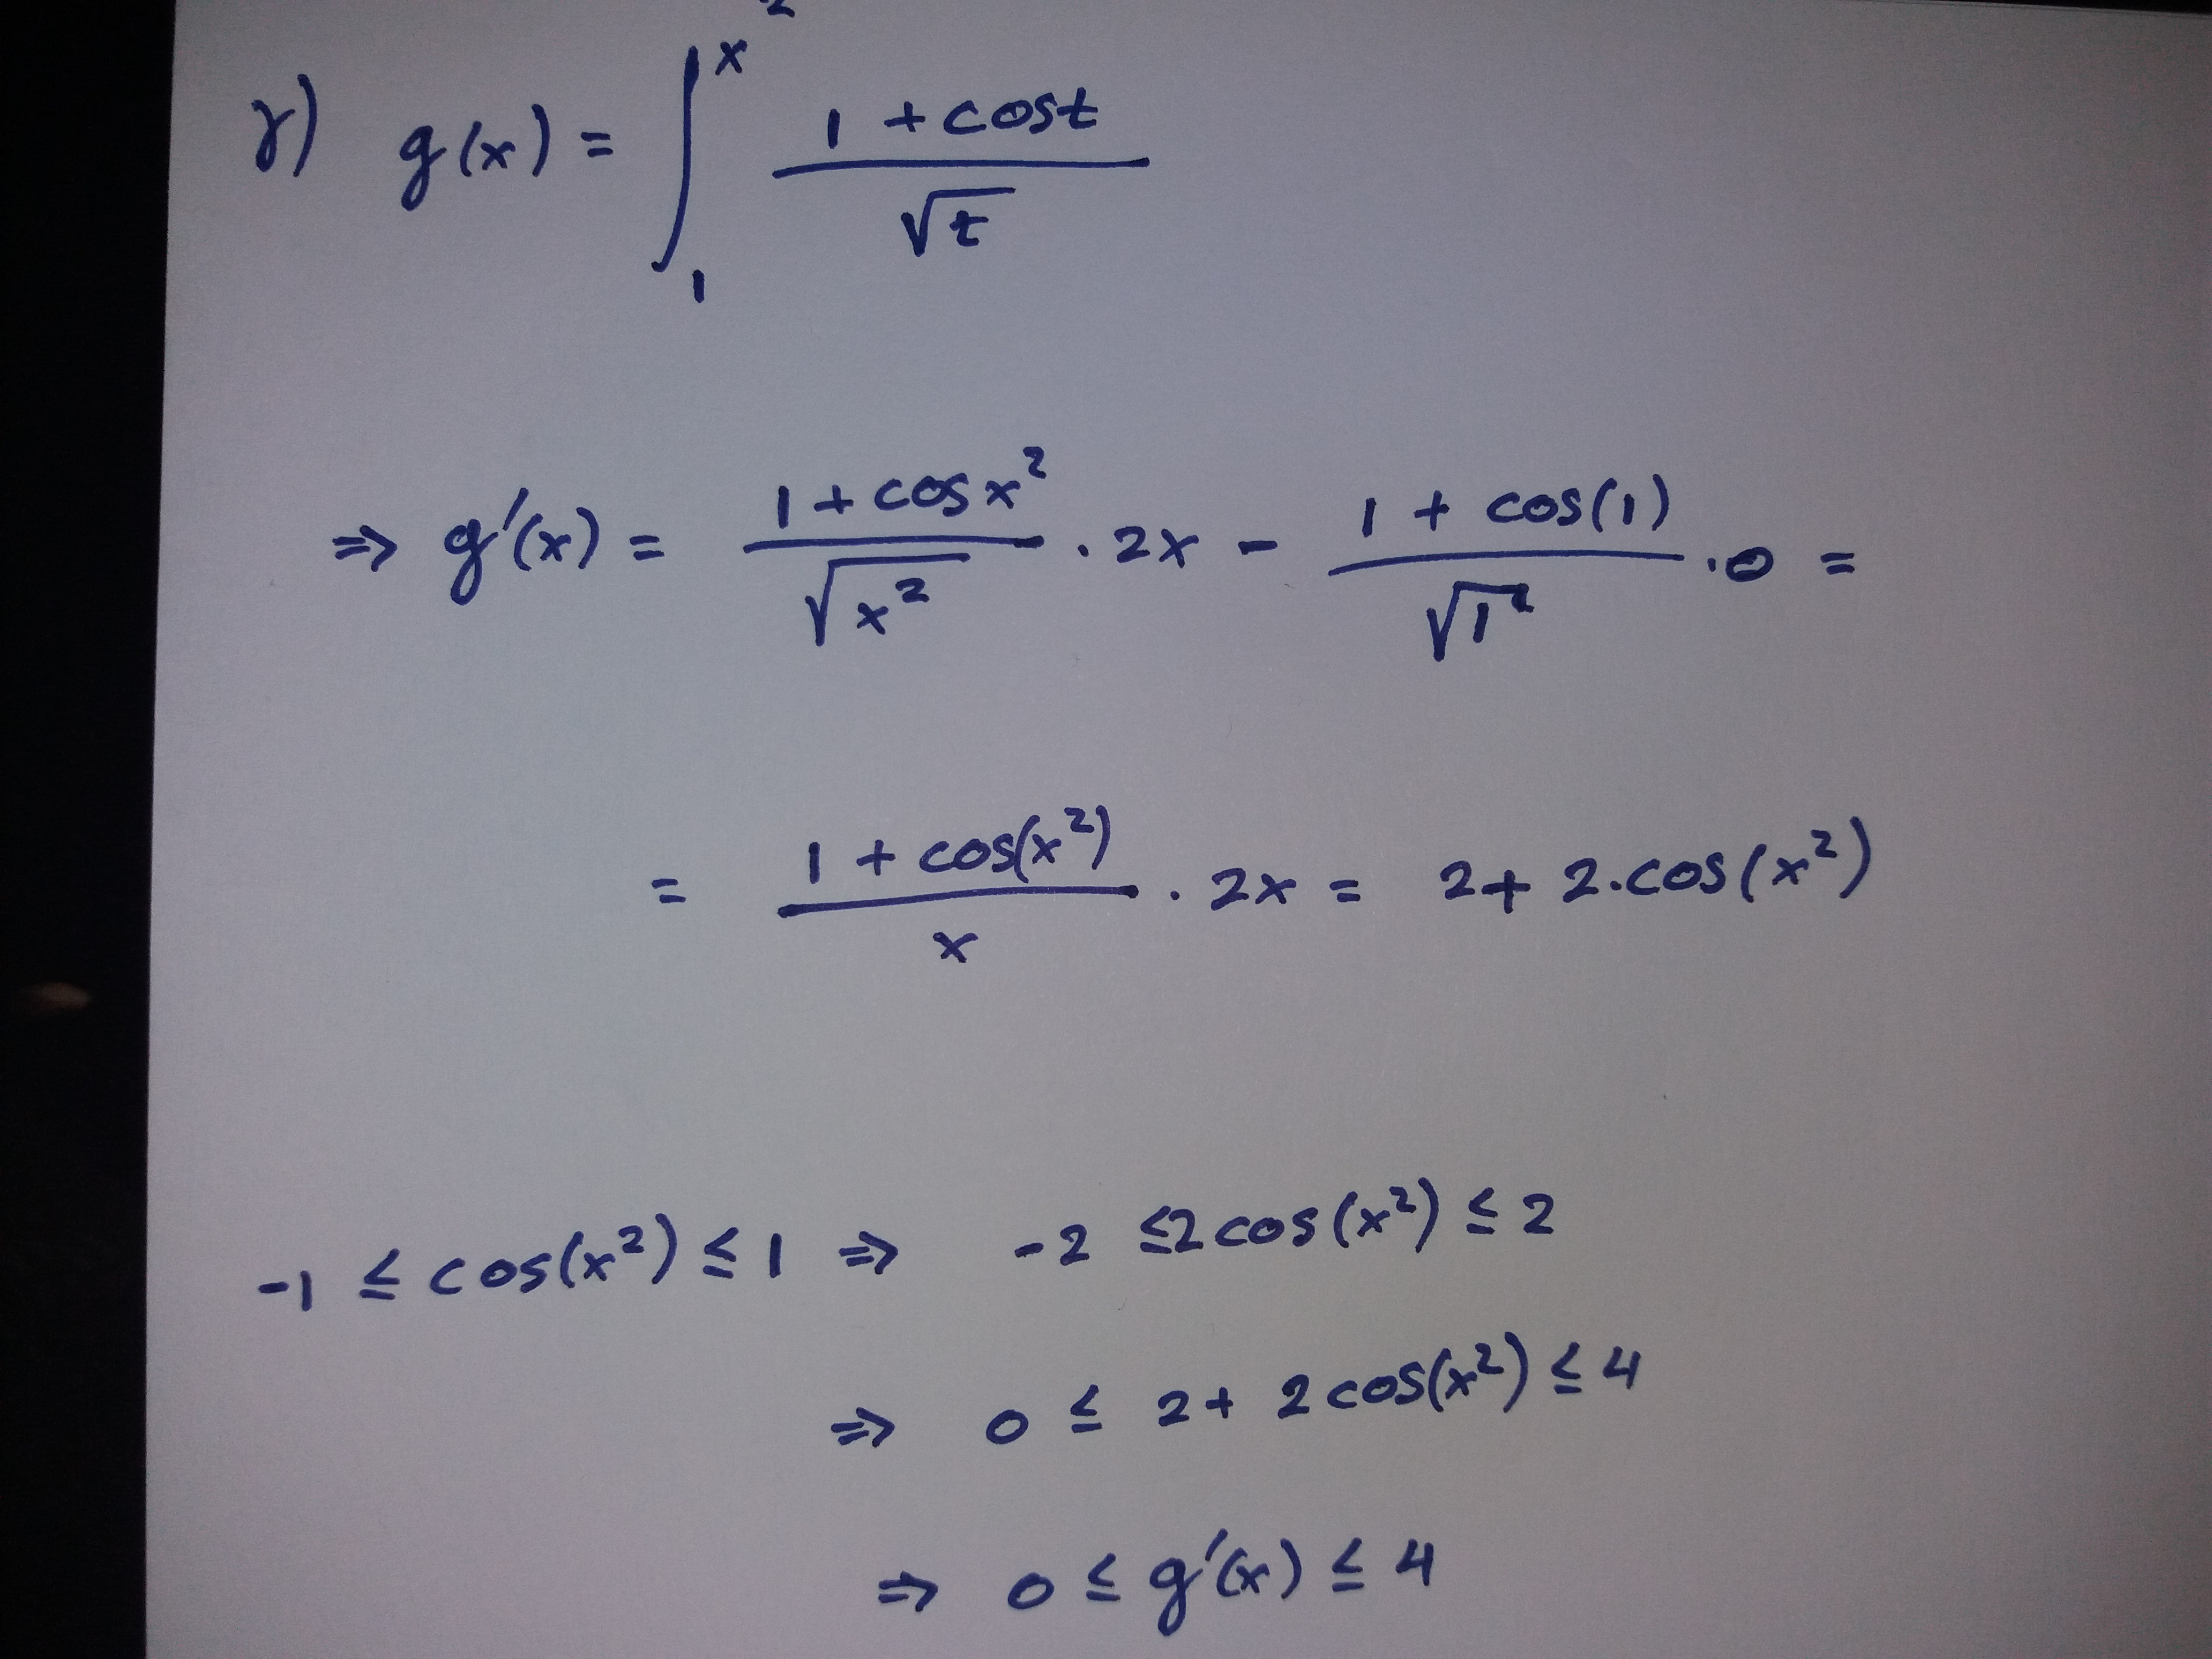 γ) g(x) = ∫₁^x² (1 + cost)/√t
⇒ g'(x) = (1 + cosx²)/√x² · 2x - (1 + cos(1))/√1² · 0 =
= (1 + cos(x²))/x · 2x = 2 + 2·cos(x²)
-1 ≤ cos(x²) ≤ 1 ⇒ -2 ≤ 2cos(x²) ≤ 2
⇒ 0 ≤ 2 + 2cos(x²) ≤ 4
⇒ 0 ≤ g'(x) ≤ 4